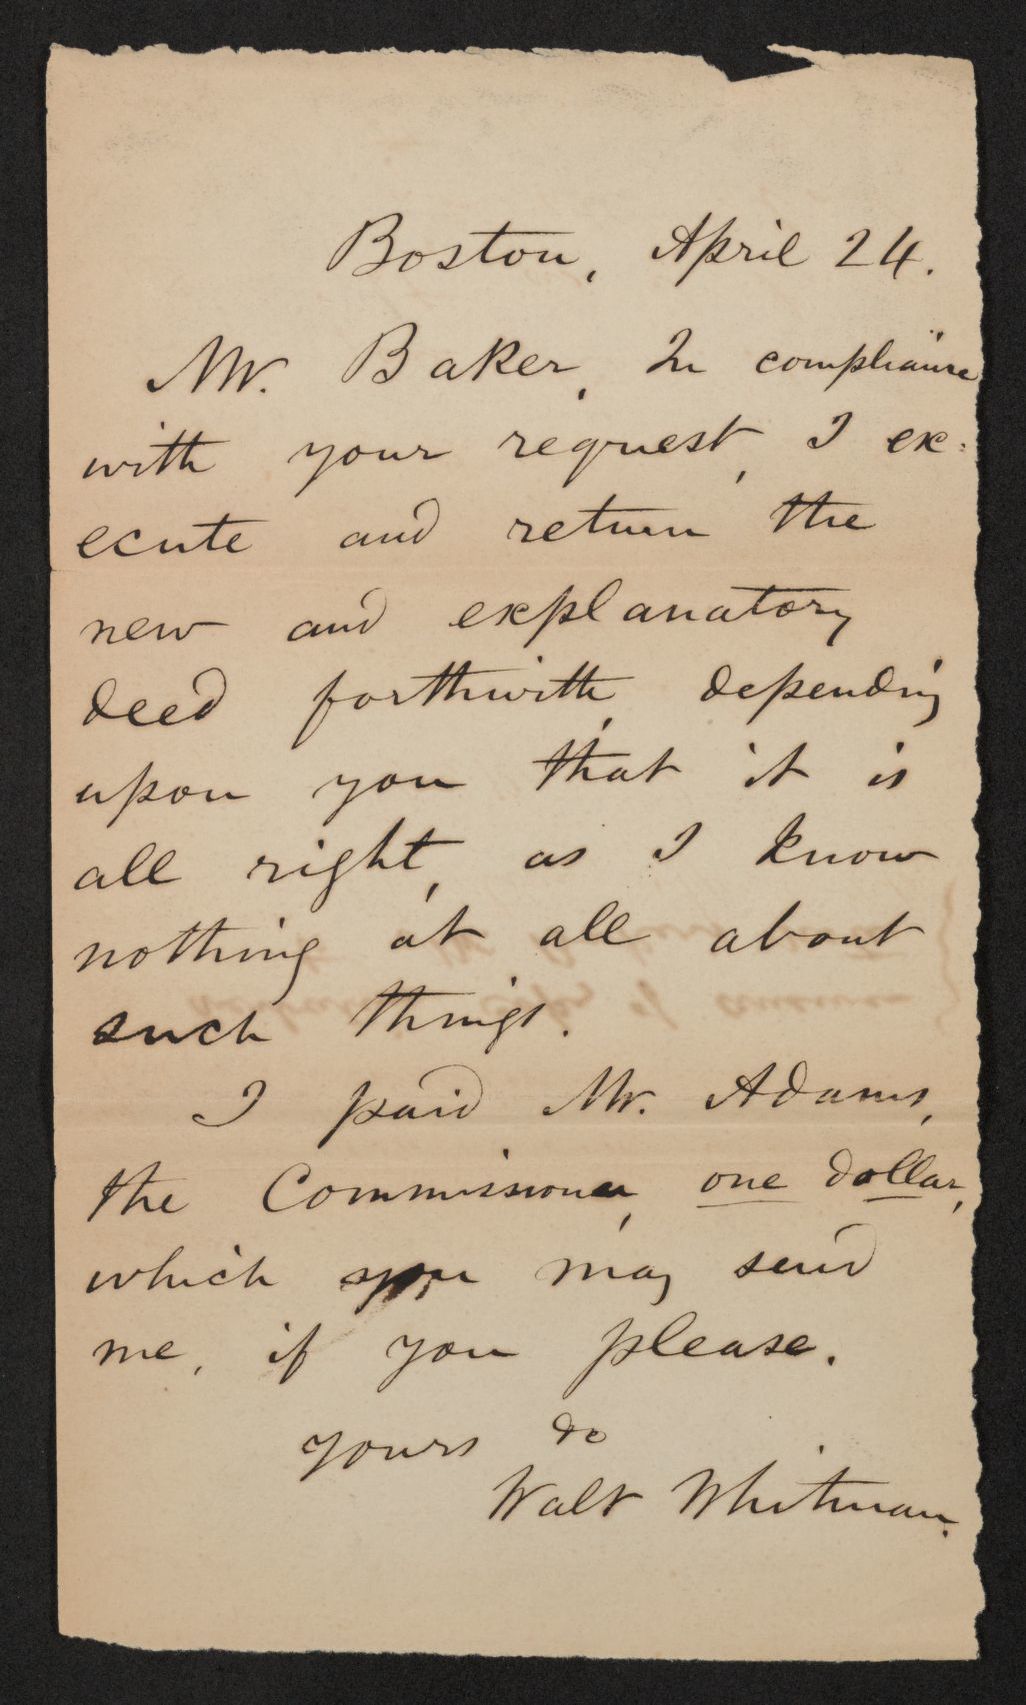 Boston, April 24.
Mr. Baker, In compliance
with your request, I ex-
ecute and return the
new and explanatory
deed forthwith, depending
upon you that it is
all right, as I know
nothing at all about
such things.
I paid Mr. Adams,
the Commissioner, one dollar,
which you may send
me, if you please.
yours &c
Walt Whitman.